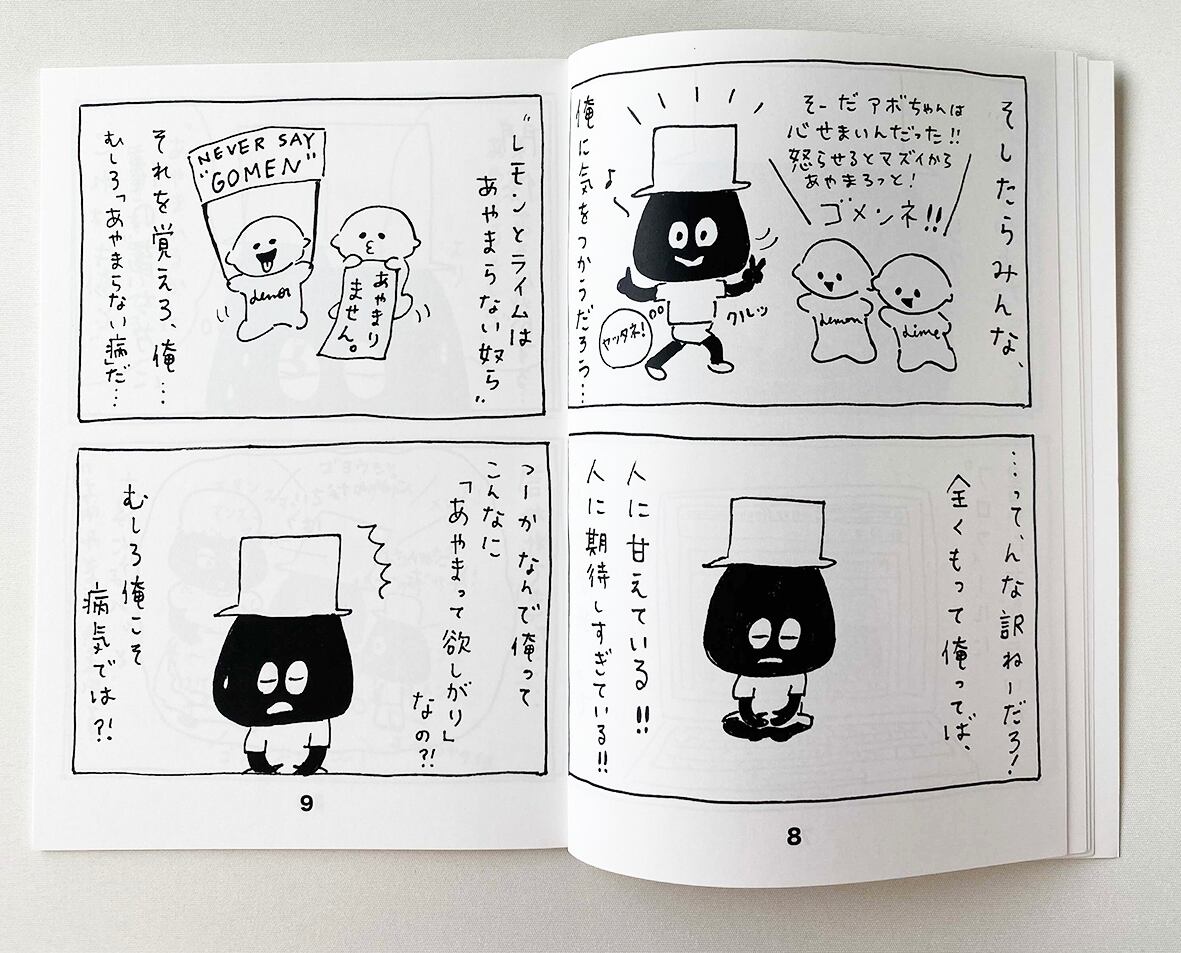 そしたらみんな、
そーだアボちゃんは
心せまいんだった!!
怒らせるとマズイから
あやまろっと!
ゴメンネ!!
Lemon
Lime
♪
クルッ
ヤッタネ!
俺に気をつかうだろう…
…って、んな訳ねーだろ!
全くもって俺ってば、
人に甘えている!!
人に期待しすぎている!!
8
"レモンとライムは
あやまらない奴ら"
NEVER SAY
"GOMEN"
Lemon
あやまり
ません。
それを覚えろ、俺…
むしろ「あやまらない病」だ…
つーかなんで俺って
こんなに
「あやまって欲しがり」
なの?!
むしろ俺こそ
病気では?!
9